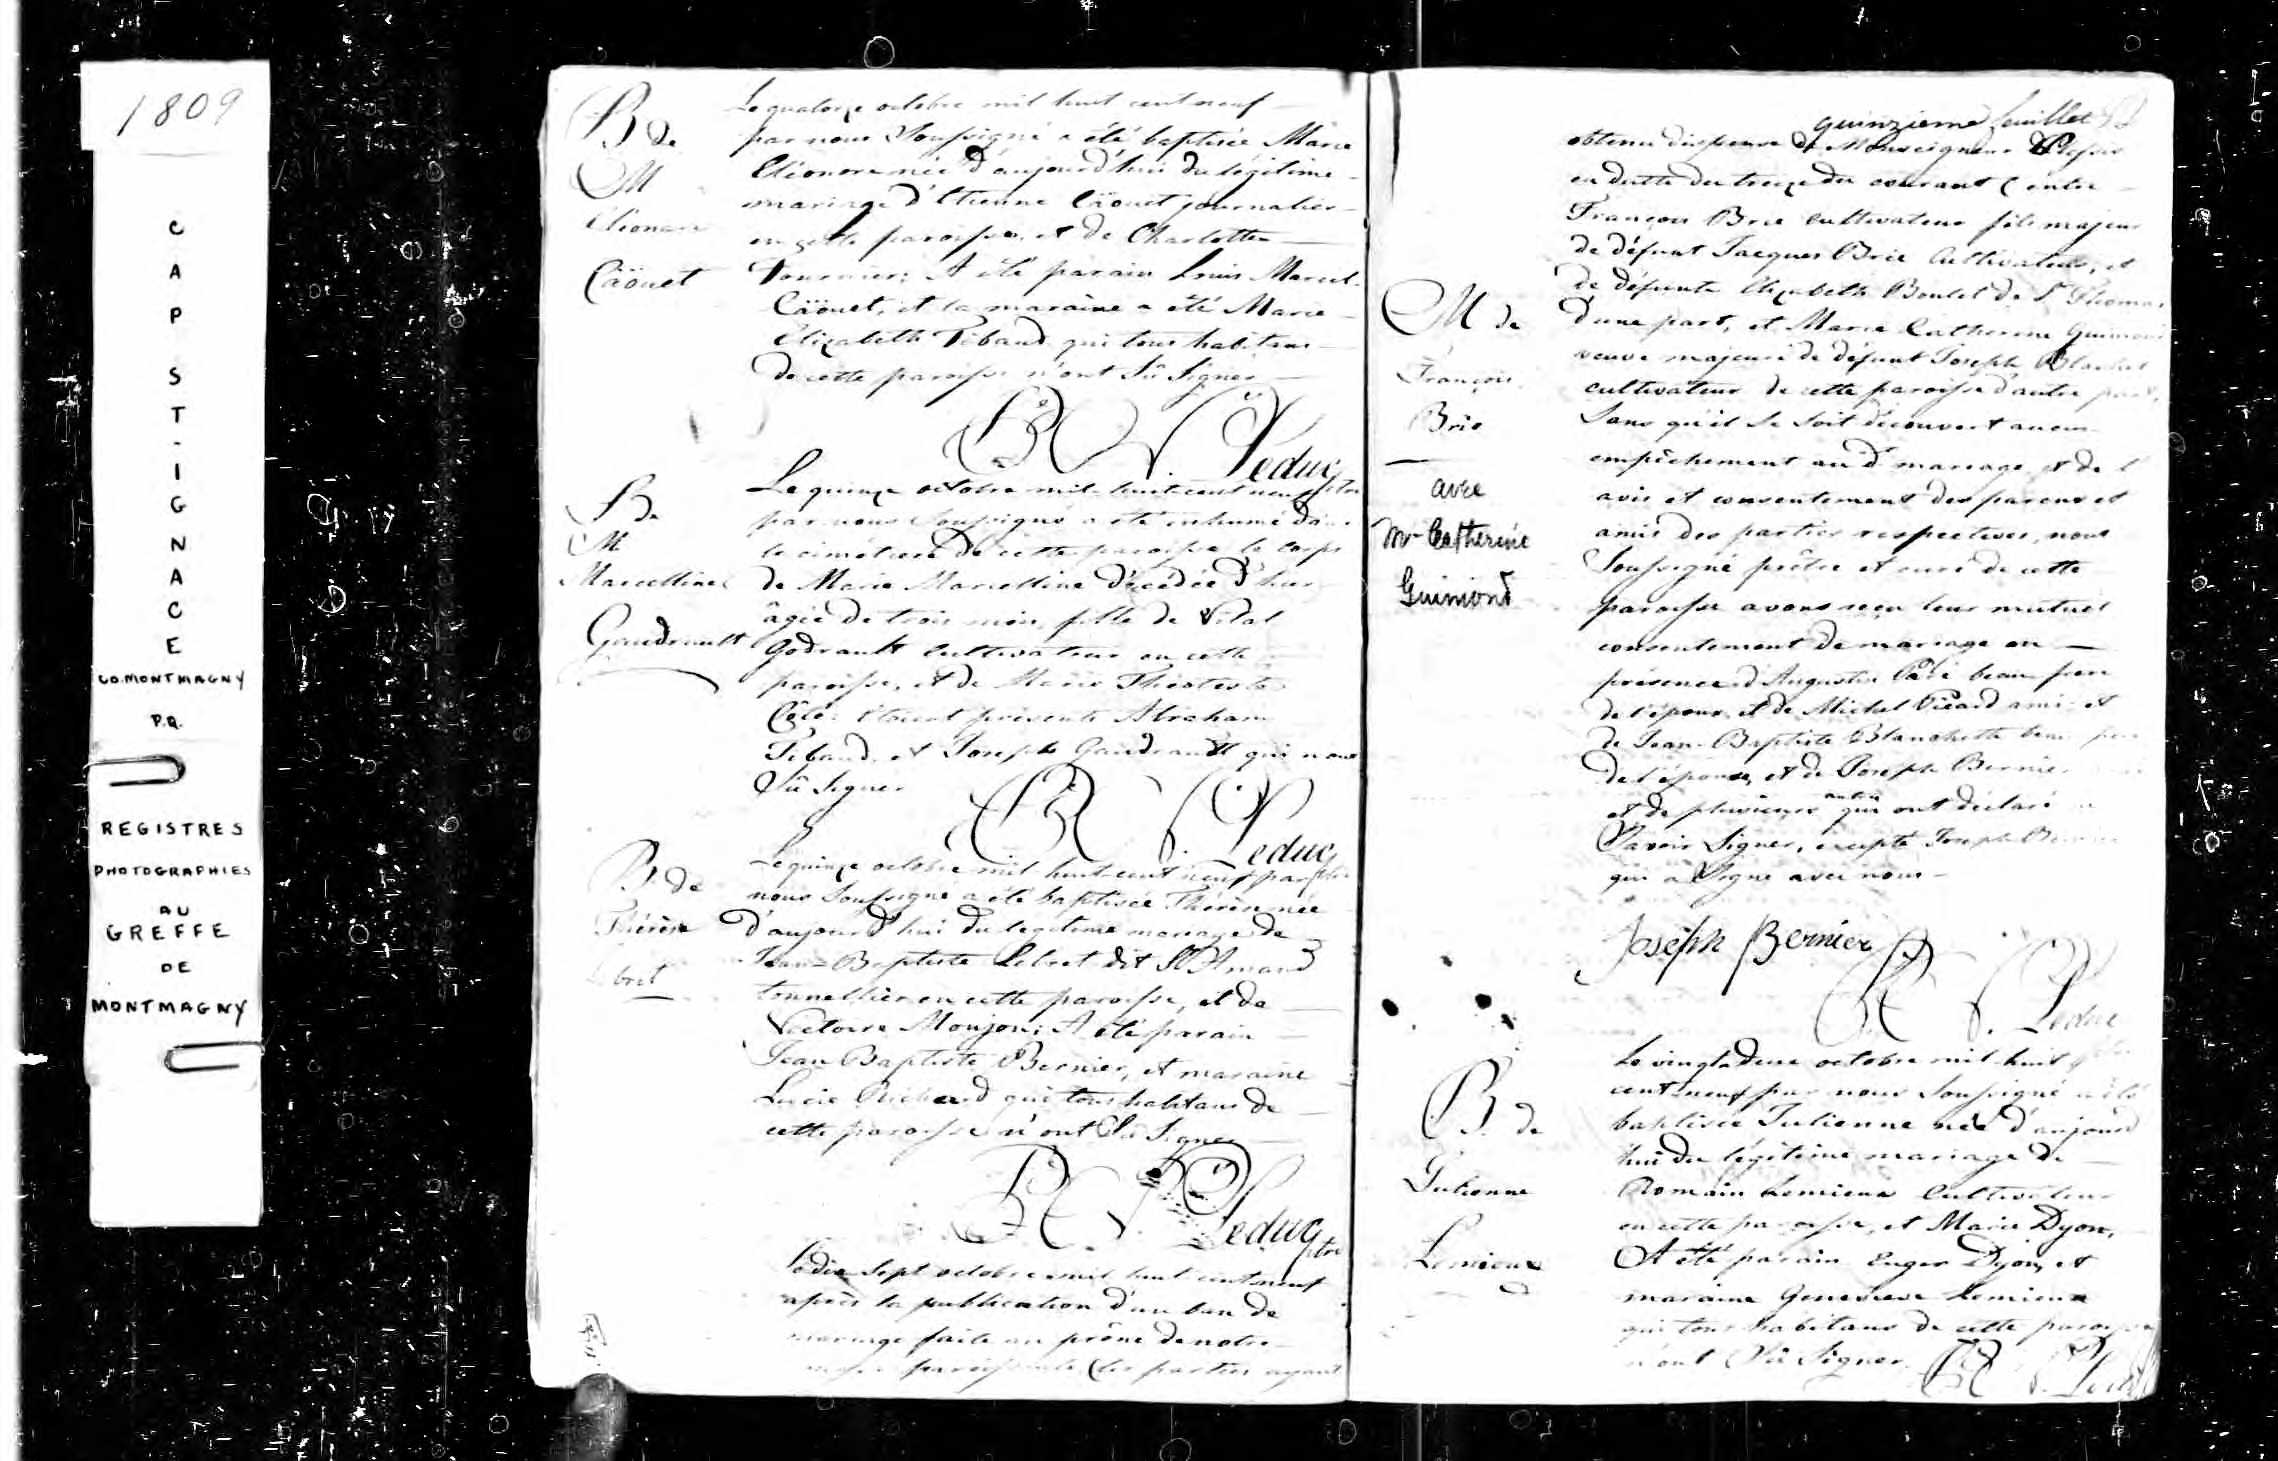 1809
CAP ST-IGNACE
CO. MONTMAGNY
P.Q.
REGISTRES
PHOTOGRAPHIES
AU
GREFFE
DE
MONTMAGNY
B de
M
Eléonore
Cäouet
Le quatorze octobre mil huit cent neuf
par nous Soussigné a été baptisée Marie
Eléonore née d'aujourd'hui du légitime
mariage d'Etienne Cäouet journalier
en cette paroisse, et de Charlotte
Fournier; A été parain Louis Marcel
Cäouet, et la maraine a été Marie
Elizabeth Tibaud qui tous habitans
de cette paroisse n'ont Sû Signer
Leduc
S de
M
Marcelline
Gaudrault
Le quinze octobre mil huit cent neuf
par nous Soussigné a été inhumé dans
le cimétiere de cette paroisse le corps
de Marie Marcelline décédée d'hier
âgée de trois mois, fille de Vital
Godrault Cultivateur en cette
paroisse, et de Marie Théotiste
Côté: Etaient présents Abraham
Tibaud, et Joseph Gaudrault qui n'ont
Sû Signer
Leduc
B. de
Thérèse
Lebret
Le quinze octobre mil huit cent neuf par
nous Soussigné a été baptisée Thérèse née
d'aujourd'hui du légitime mariage de
Jean-Baptiste Lebret dit St Amand
tonnellier en cette paroisse, et de
Victoire Monjon; A été parain
Jean Baptiste Bernier, et maraine
Lucie Richard qui tous habitans de
cette paroisse n'ont Sû Signer
Leduc ptre
Le dix Sept octobre mil huit cent neuf
après la publication d'un ban de
mariage faite au prône de notre
messe paroissiale (les parties ayant
quinzieme feuillet
obtenu dispense de Monseigneur Plessis
en datte du treize du courant) entre
François Brie cultivateur fils majeur
de défunt Jacques Brie Cultivateur, et
de défunte Elizabeth Boulet de St Thomas
d'une part, et Marie Catherine Guimond
veuve majeure de défunt Joseph
cultivateur de cette paroisse d'autre part,
Sans qu'il Se Soit découvert aucun
empêchement au dt mariage, et de l'
avis et consentement des parens et
amis des parties respectives, nous
Soussigné prêtre et curé de cette
paroisse avons reçu leur mutuel
consentement de mariage en
présence d'Augustin beau frere
de l'époux, et de Michel Picard ami et
de Jean-Baptiste Blanchette beau pere
de l'épouse, et de Joseph Bernier
et de plusieurs autres qui ont déclaré
Savoir Signer, excepté Joseph Bernier
qui a Signé avec nous
M de
François
Brie
avec
Me Catherine
Guimond
Joseph Bernier
Leduc
B. de
Julienne
Lemieux
Le vingt deux octobre mil huit
cent neuf par nous Soussigné a été
baptisée Julienne née d'aujourd
hui du légitime mariage de
Romain Lemieux Cultivateur
en cette paroisse, et Marie Dyon,
A été parain Euger Dyon, et
maraine Genevieve Lemieux
qui tous habitans de cette paroisse
n'ont Sû Signer
Leduc